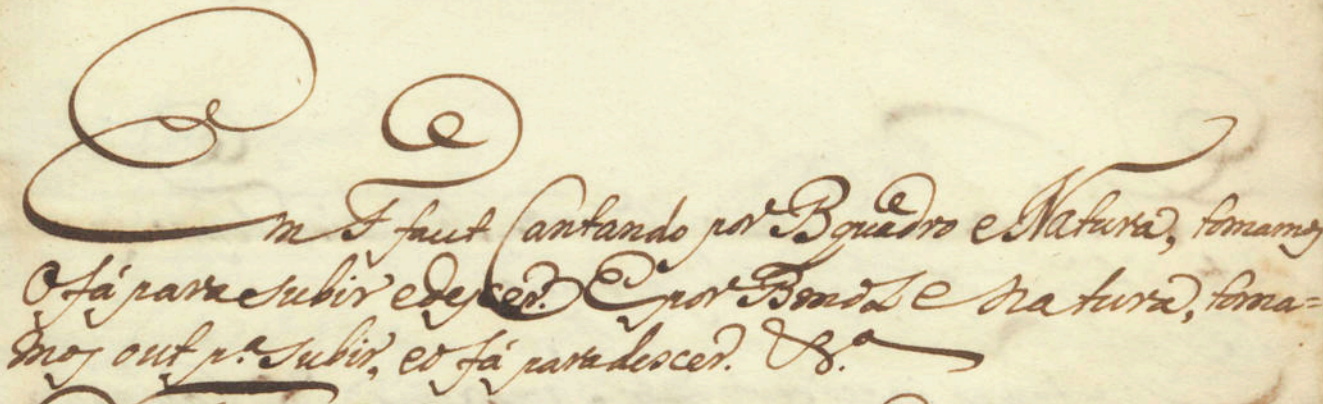 Em F faut Cantando por Bquadro e Natura, tomamos
o fá para subir e descer. E por Bmol e Natura, toma=
mos out p.ª subir, e o fá para descer. &.ª